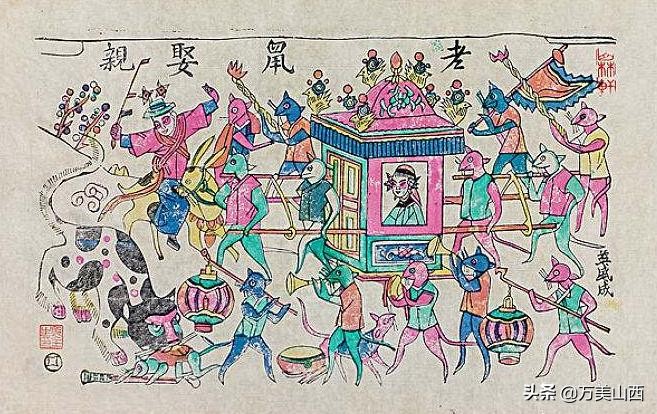 老鼠娶親
盛成
头条 @万美山西